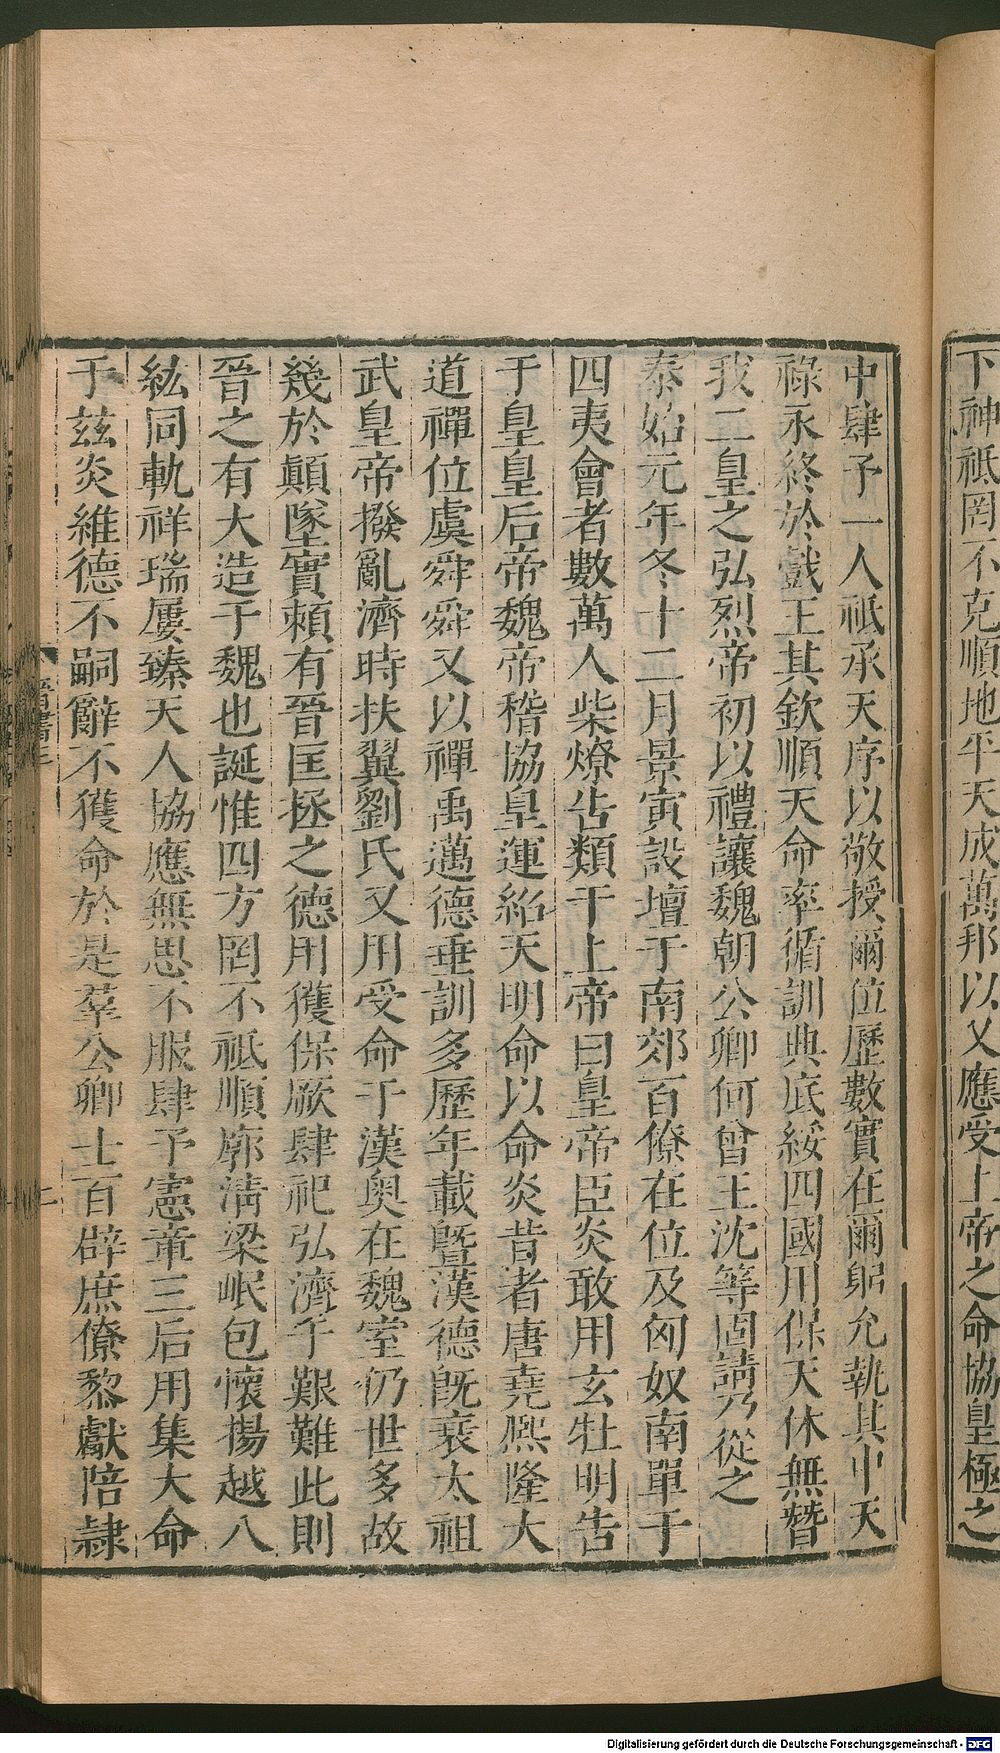 下神祗罔不克順地平天成萬邦以乂應受上帝之命協皇極之
中肆予一人祗承天序以敬授爾位歷數實在爾躬允執其中天
祿永終於戲王其欽順天命率循訓典底綏四國用保天休無替
我二皇之弘烈帝初以禮讓魏朝公卿何曾王沈等固請乃從之
泰始元年冬十二月景寅設壇于南郊百僚在位及匈奴南單于
四夷會者數萬人柴燎告類于上帝曰皇帝臣炎敢用玄牡明告
于皇皇后帝魏帝稽協皇運紹天明命以命炎昔者唐堯熈隆大
道禪位虞舜舜又以禪禹邁德垂訓多歷年載曁漢德旣衰太祖
武皇帝撥亂濟時扶翼劉氏又用受命于漢奥在魏室仍世多故
幾於顚墜實賴有晉匡拯之德用獲保厥肆祀弘濟于艱難此則
晉之有大造于魏也誕惟四方罔不祗順廓淸梁岷包懷揚越八
紘同軌祥瑞屢臻天人協應無思不服肆予憲章三后用集大命
于茲炎維德不嗣辭不獲命於是羣公卿士百辟庶僚黎獻陪隷
晉書三
Digitalisierung gefördert durch die Deutsche Forschungsgemeinschaft - DFG